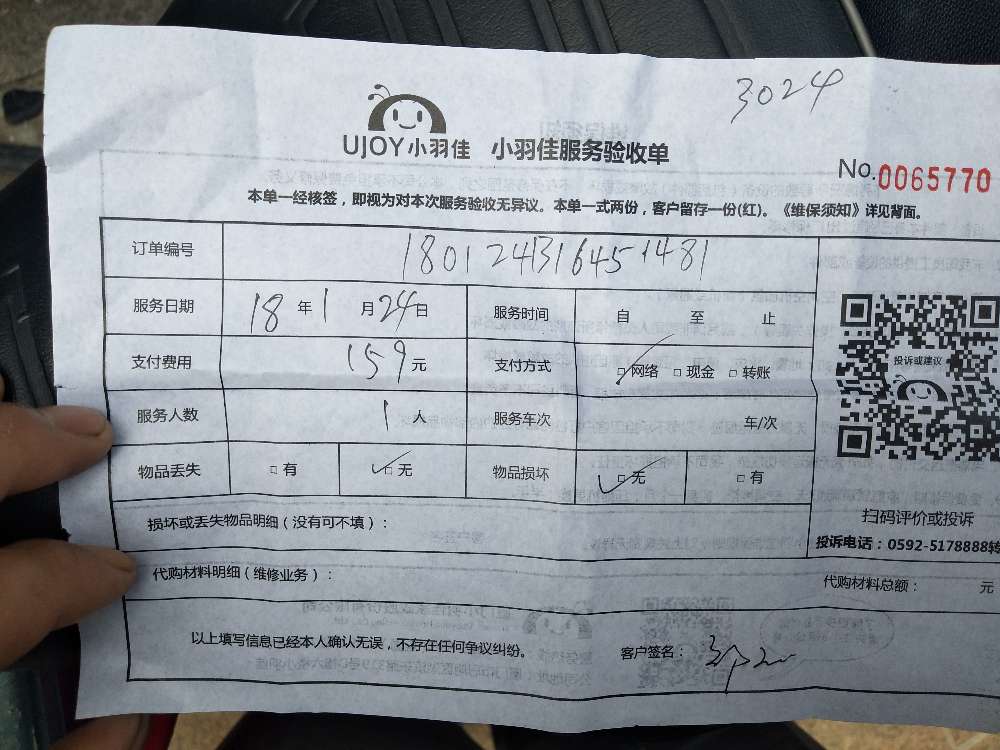 3024
UJOY小羽佳 小羽佳服务验收单
No.0065770
本单一经核签，即视为对本次服务验收无异议。本单一式两份，客户留存一份(红)。《维保须知》详见背面。
订单编号 180124316451481
服务日期 18年1月24日 服务时间 自 至 止
支付费用 159元 支付方式 网络 现金 转账
服务人数 1人 服务车次 车/次
物品丢失 有 无 物品损坏 无 有
投诉或建议
扫码评价或投诉
投诉电话：0592-5178888转
损坏或丢失物品明细（没有可不填）：
代购材料明细（维修业务）： 代购材料总额： 元
以上填写信息已经本人确认无误，不存在任何争议纠纷。 客户签名：